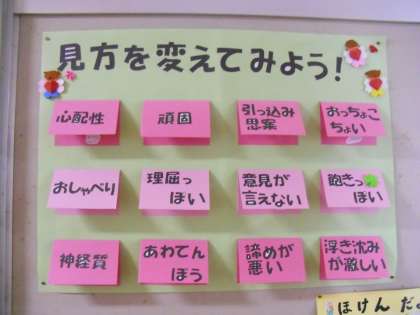 見方を変えてみよう!
心配性
頑固
引っ込み
思案
おっちょこ
ちょい
おしゃべり
理屈っ
ぽい
意見が
言えない
飽きっ
ぽい
神経質
あわてん
ぼう
諦めが
悪い
浮き沈み
が激しい
ほけんだ